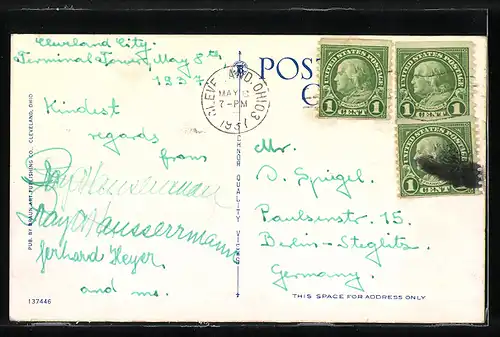 Cleveland City.
Terminal Tower, May 8th
1937
Kindest
regards
from
Ray Hausserman
Ray Hausserrmann
Gerhard Heyer
and me.
PUB. BY BRAUN ART PUBLISHING CO., CLEVELAND, OHIO
137446
CLEVELAND, OHIO 3
MAY
7-PM
1937
POST
UNITED STATES POSTAGE
1 CENT 1
UNITED STATES POSTAGE
1 CENT 1
UNITED STATES POSTAGE
1 CENT
Mr.
D. Spiegel.
Paulsenstr. 15.
Berlin-Steglitz
Germany.
THIS SPACE FOR ADDRESS ONLY